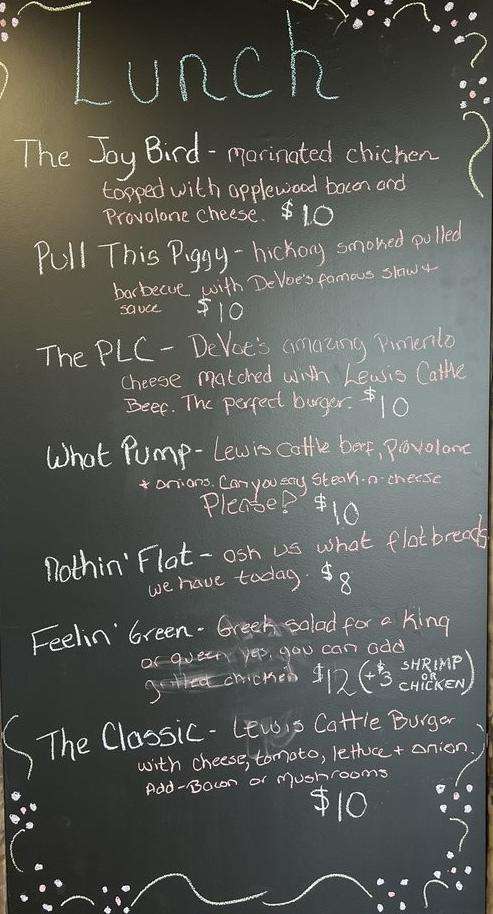 Lunch
The Joy Bird - marinated chicken
topped with applewood bacon and
Provolone cheese. $10
Pull This Piggy - hickory smoked pulled
barbecue with DeVoe's famous slaw +
sauce $10
The PLC - DeVoe's amazing Pimento
cheese matched with Lewis Cattle
Beef. The perfect burger. $10
What Pump - Lewis Cattle beef, provolone
+ onions. Can you say Steak-n-cheese
Please? $10
Nothin' Flat - ask us what flatbreads
we have today. $8
Feelin' Green - Greek salad for a King
or queen yes, you can add
grilled chicken $12 (+$3 SHRIMP
OR
CHICKEN)
The Classic - Lewis Cattle Burger
with cheese, tomato, lettuce + onion.
Add-Bacon or Mushrooms
$10